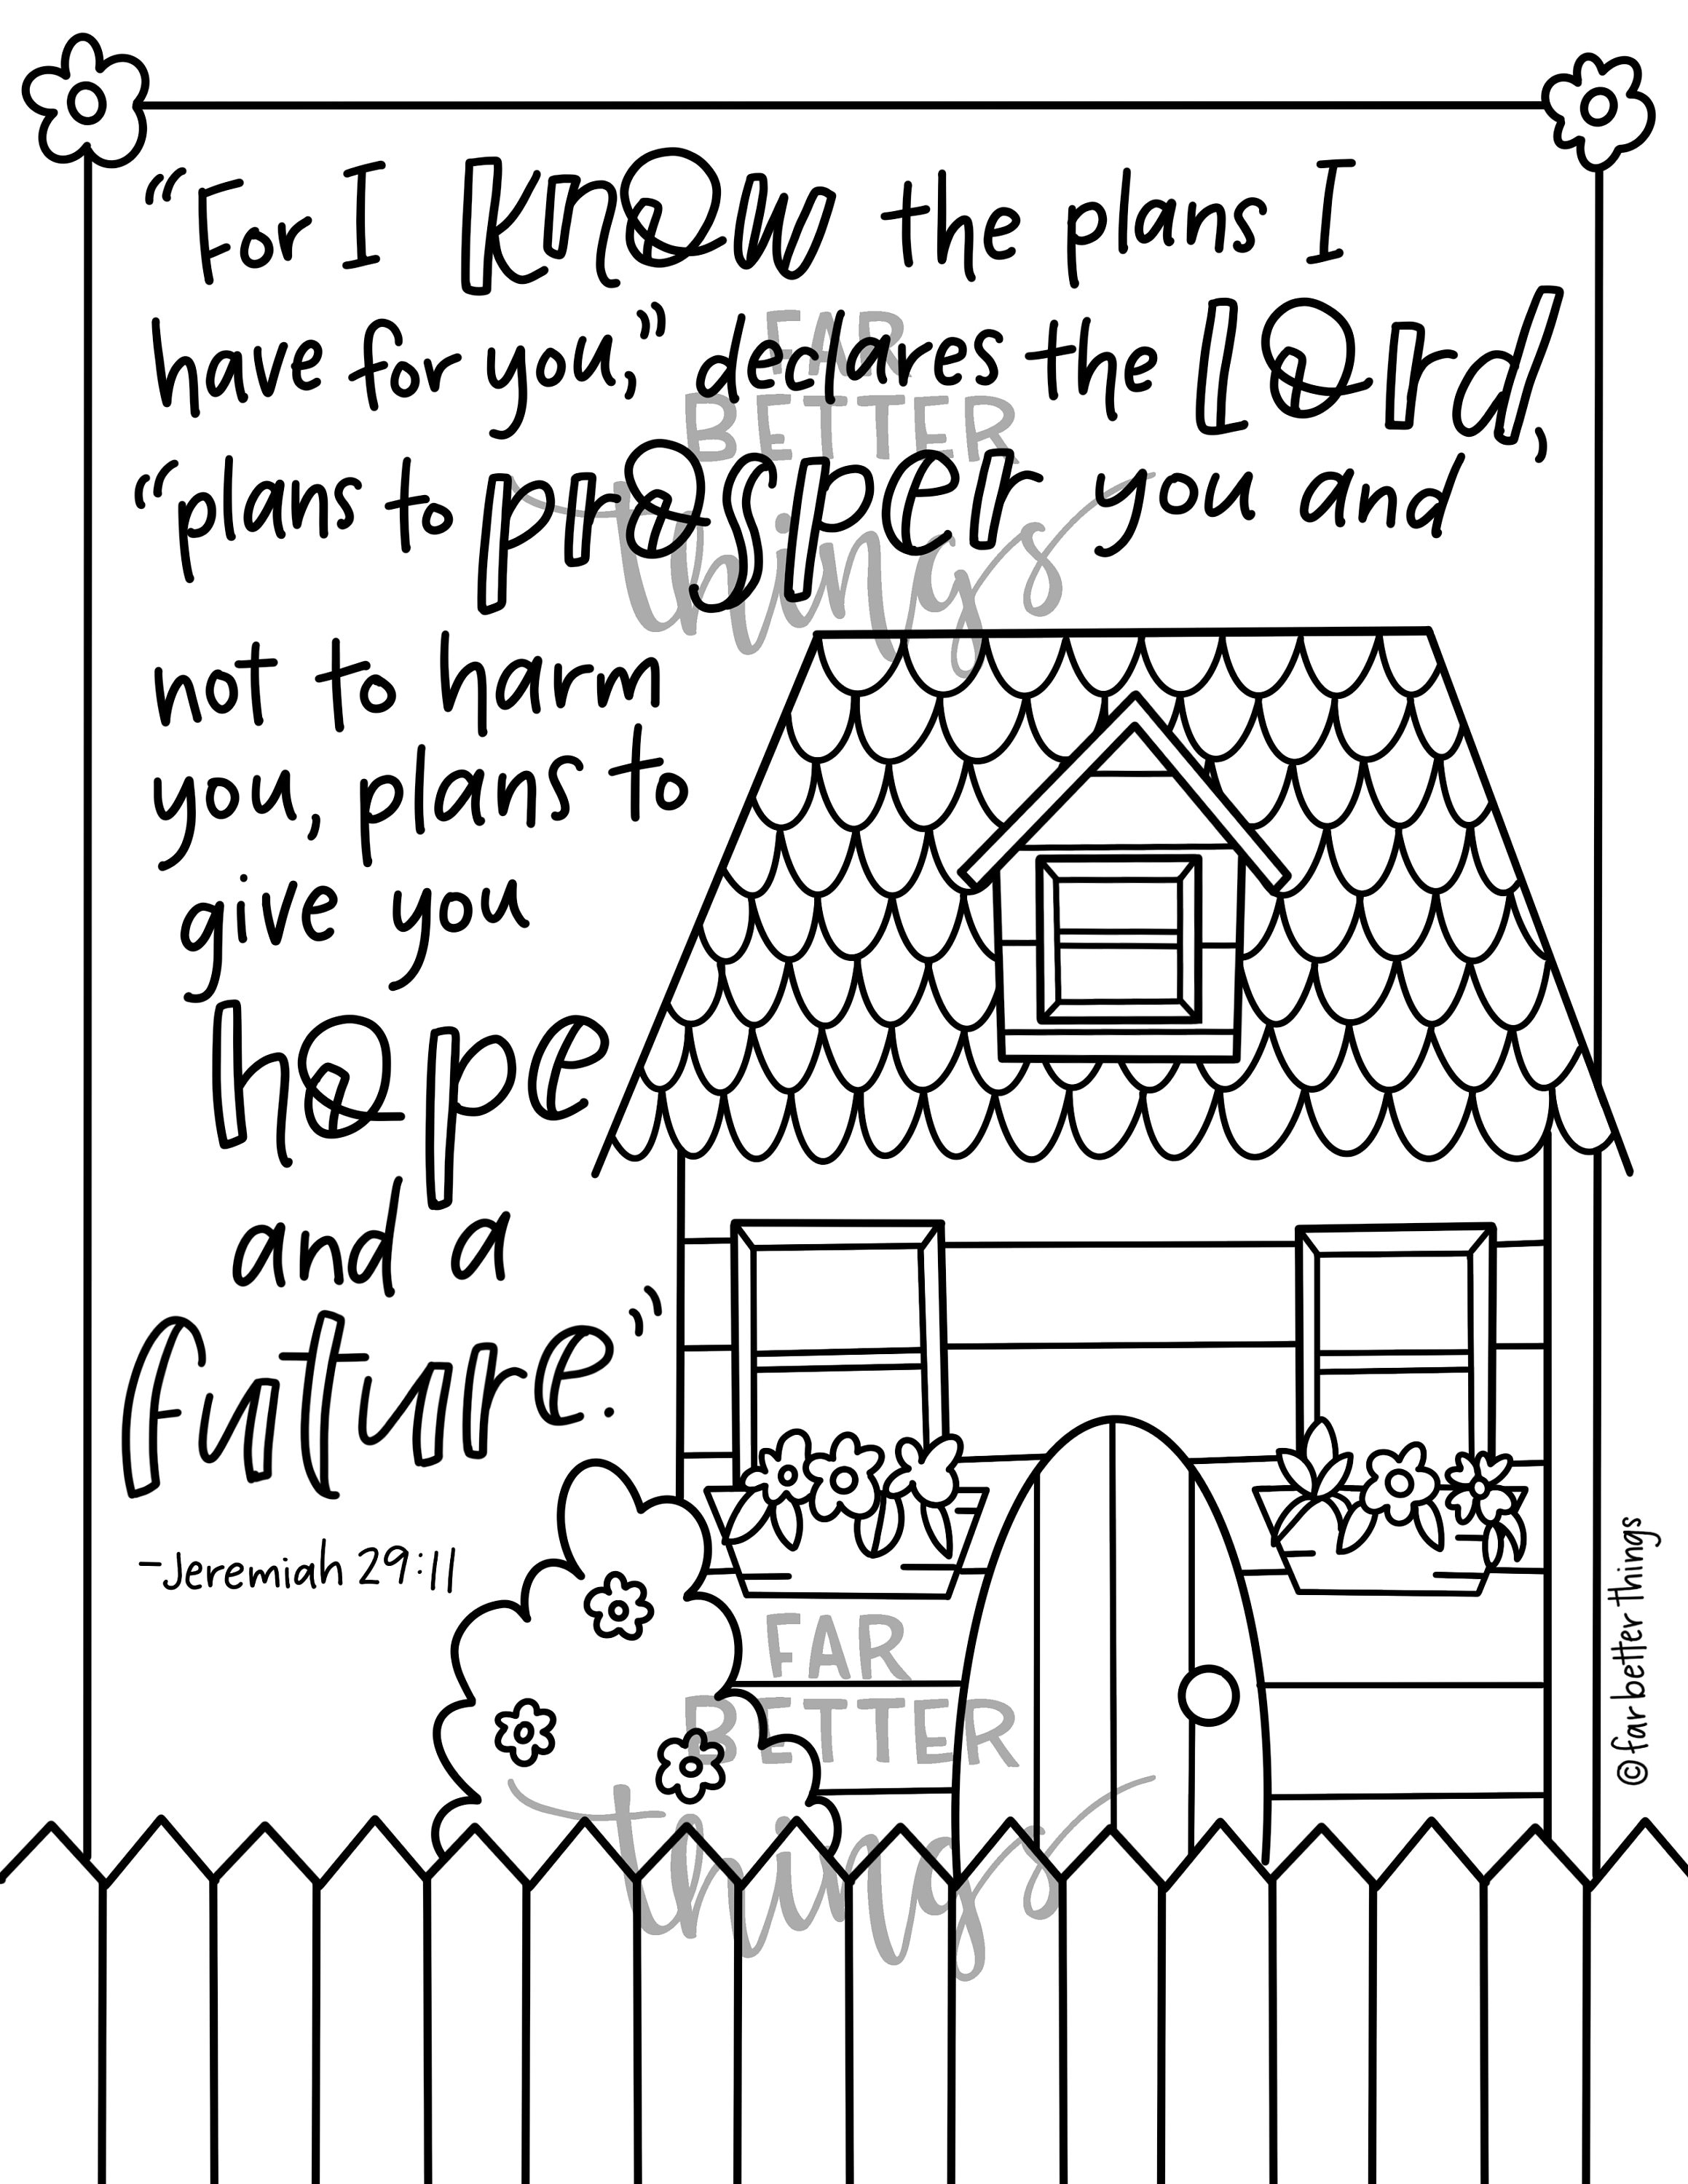 “For I know the plans I
have for you,” declares the Lord,
“plans to prosper you and
not to harm
you, plans to
give you
hope
and a
future.”
-Jeremiah 29:11
FAR
BETTER
things
FAR
BETTER
things
©far better things